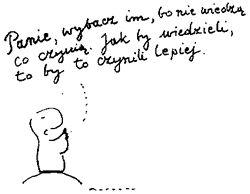 Panie, wybacz im, bo nie wiedzą
co czynią. Jak by wiedzieli,
to by to czynili lepiej.